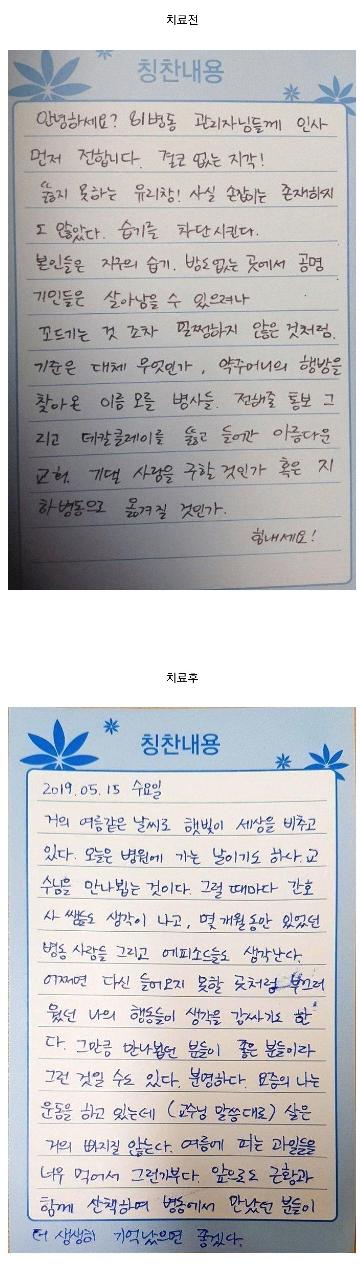 치료전
칭찬내용
안녕하세요? 81병동 관리자님들께 인사
먼저 전합니다. 결코 없는 지각!
뚫지 못하는 유리창! 사실 손잡이는 존재하지
도 않았다. 습기를 차단시킨다.
본인들은 지구의 습기. 밤도없는 곳에서 공명
기인들은 살아남을 수 있으려나
꼬드기는 것 조차 멀쩡하지 않은 것처럼.
기준은 대체 무엇인가, 약주머니의 행방을
찾아온 이름 모를 병사들. 전해줄 통보 그
리고 데칼클레이를 뚫고 들어간 아름다운
교회. 기댈 사람을 구할 것인가 혹은 지
하병동으로 옮겨질 것인가.
힘내세요!
치료후
칭찬내용
2019.05.15 수요일
거의 여름같은 날씨로 햇빛이 세상을 비추고
있다. 오늘은 병원에 가는 날이기도 하다. 교
수님을 만나뵙는 것이다. 그럴 때마다 간호
사 쌤들도 생각이 나고, 몇 개월동안 있었던
병동 사람들 그리고 에피소드들도 생각난다.
어쩌면 다신 들어오지 못할 곳처럼 부끄러
웠던 나의 행동들이 생각을 감싸기도 한
다. 그만큼 만나뵙던 분들이 좋은 분들이라
그런 것일 수도 있다. 분명하다. 요즘의 나는
운동을 하고 있는데 (교수님 말씀대로) 살은
거의 빠지질 않는다. 여름에 피는 과일들을
너무 먹어서 그런가부다. 앞으로도 근황과
함께 산책하며 병동에서 만났던 분들이
더 생생히 기억났으면 좋겠다.